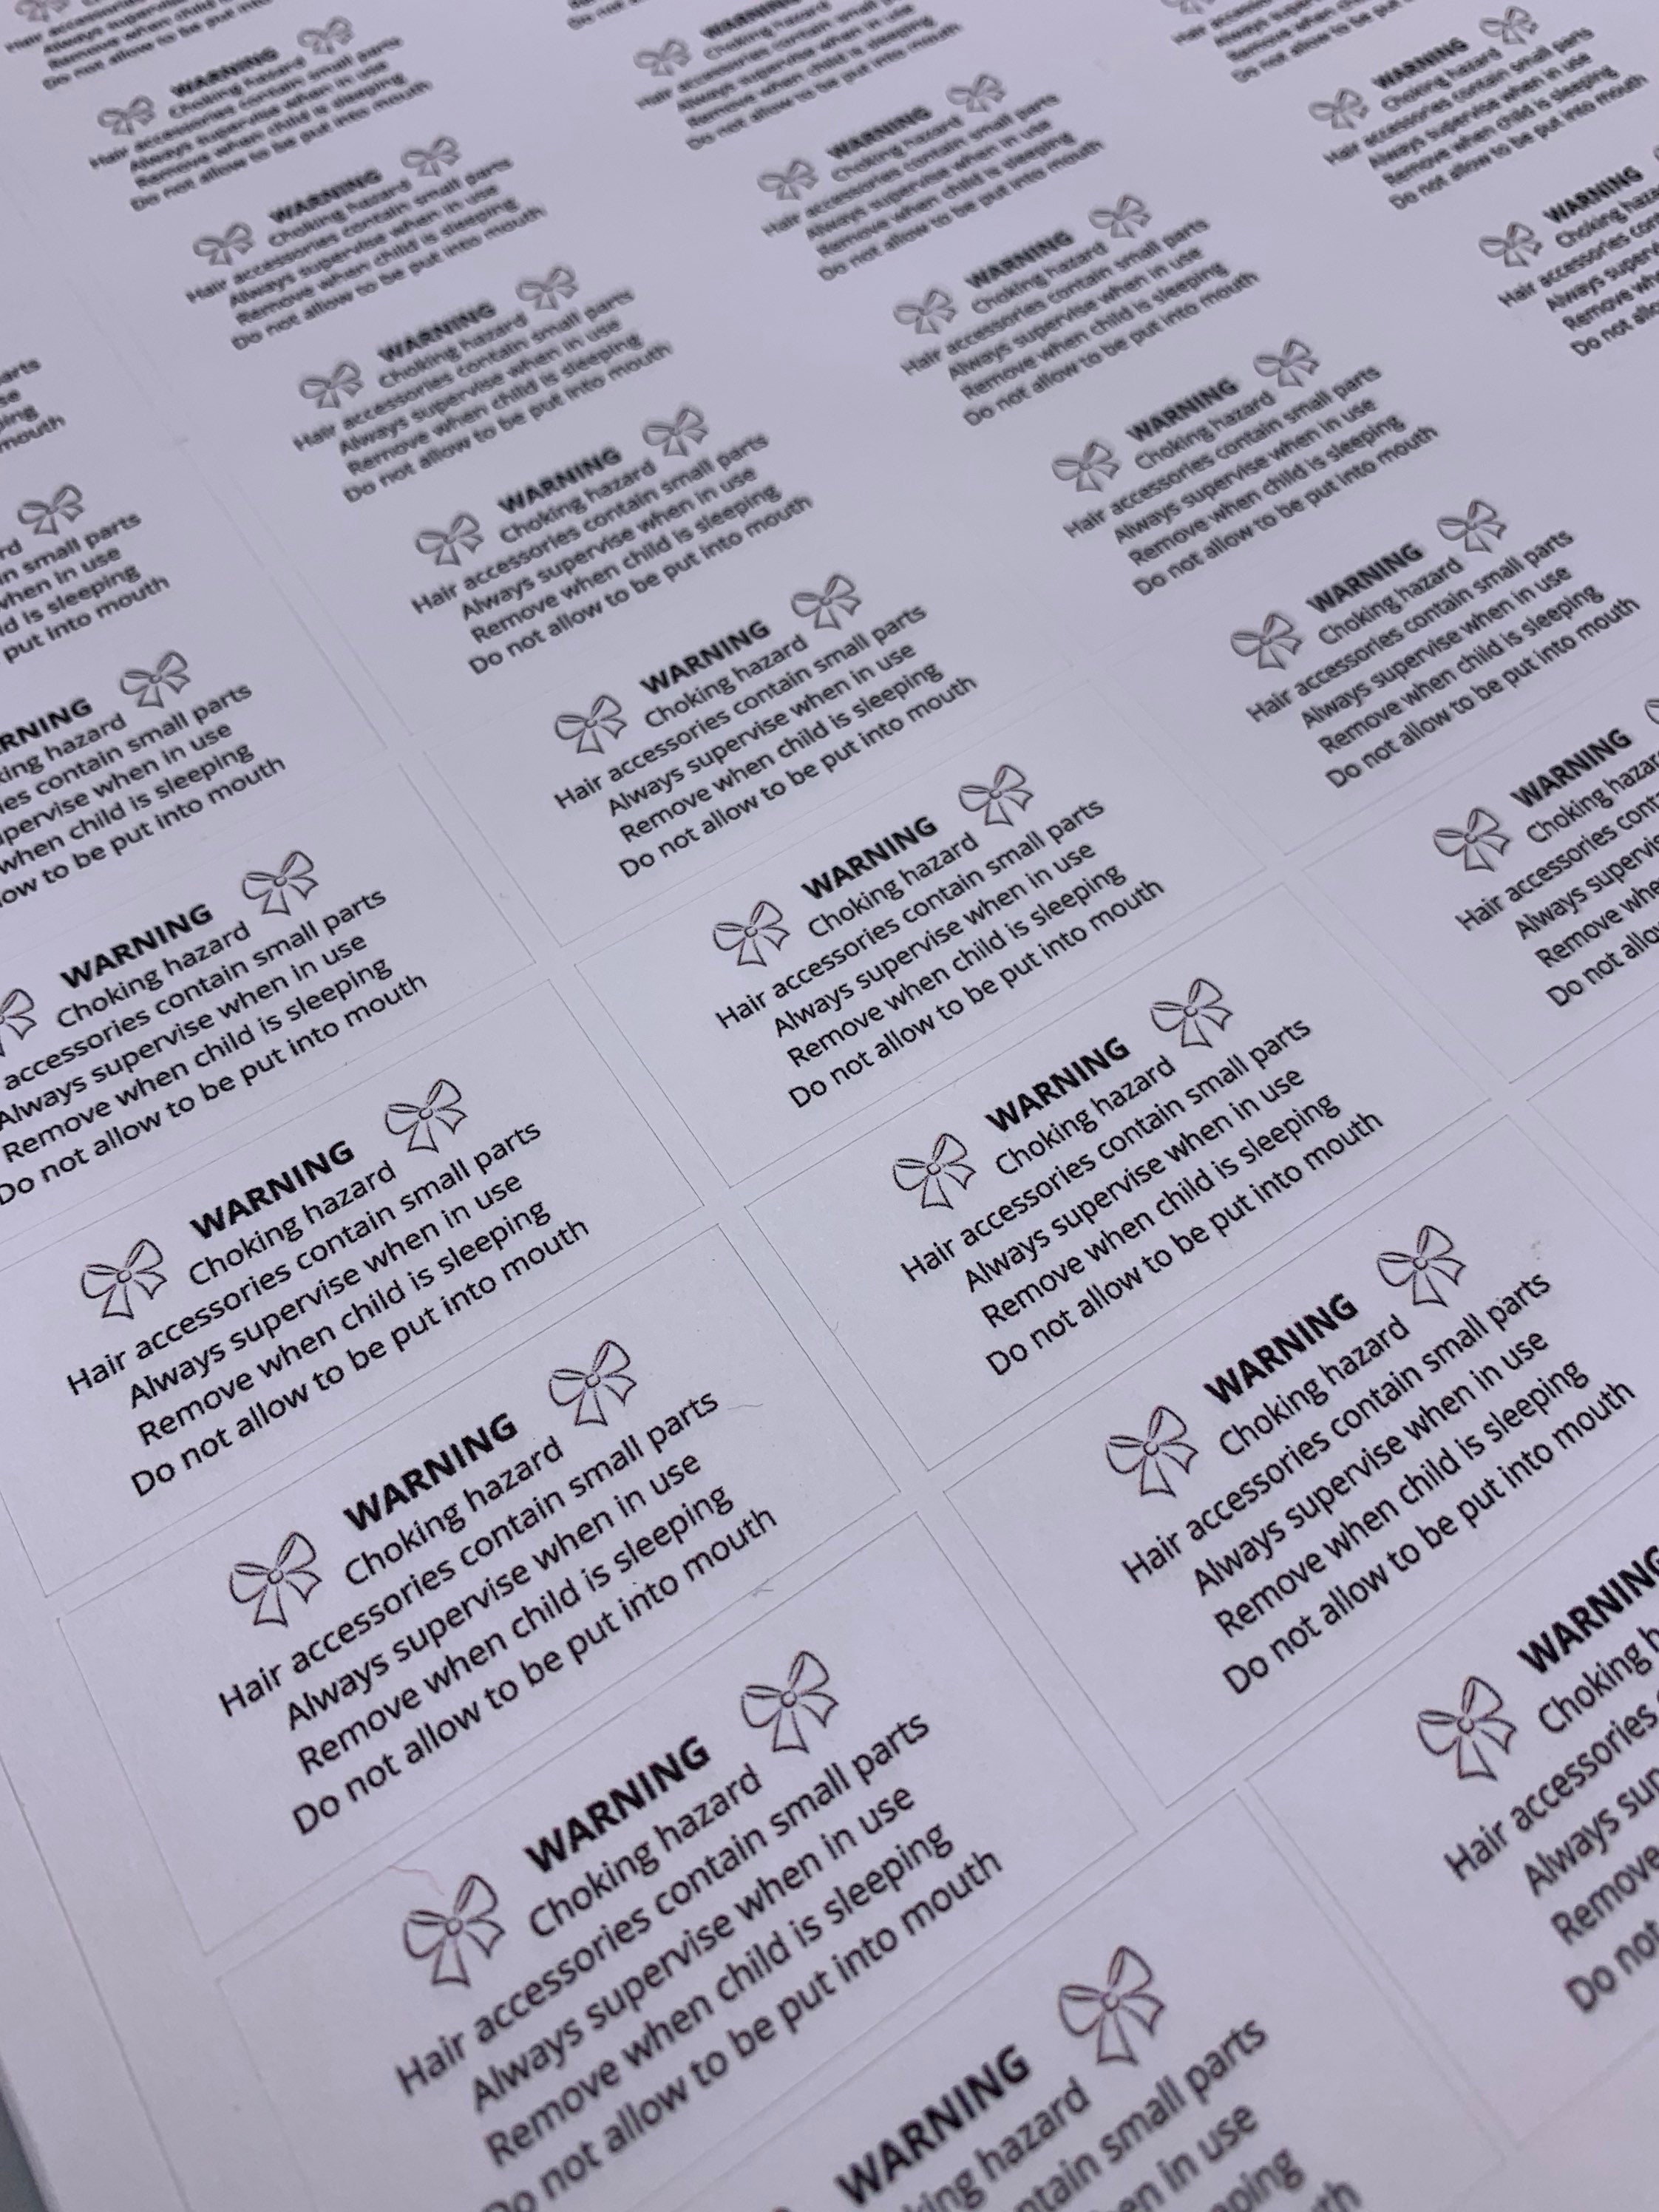 small parts
when in use
is sleeping
put into mouth
hazard
contain small parts
when in use
when child is sleeping
to be put into mouth
WARNING
Choking hazard
accessories contain small parts
Always supervise when in use
Remove when child is sleeping
Do not allow to be put into mouth
WARNING
Choking hazard
Hair accessories contain small parts
Always supervise when in use
Remove when child is sleeping
Do not allow to be put into mouth
WARNING
Choking hazard
Hair accessories contain small parts
Always supervise when in use
Remove when child is sleeping
Do not allow to be put into mouth
WARNING
Choking hazard
Hair accessories contain small parts
Always supervise when in use
Remove when child is sleeping
not allow to be put into mouth
WARNING
Choking hazard
Hair accessories contain small parts
Always supervise when in use
Remove when child is sleeping
Do not allow to be put into mouth
WARNING
Choking hazard
Hair accessories contain small parts
Always supervise when in use
Remove when child is sleeping
Do not allow to be put into mouth
WARNING
Choking hazard
Hair accessories contain small parts
Always supervise when in use
Remove when child is sleeping
Do not allow to be put into mouth
WARNING
Choking hazard
Hair accessories contain small parts
Always supervise when in use
Remove when child is sleeping
Do not allow to be put into mouth
WARNING
Choking hazard
Hair accessories contain small parts
Always supervise when in use
Remove when child is sleeping
Do not allow to be put into mouth
WARNING
Choking hazard
Hair accessories contain small parts
Always supervise when in use
Remove when child is sleeping
Do not allow to be put into mouth
WARNING
Choking hazard
Hair accessories contain small parts
Always supervise when in use
Remove when child is sleeping
Do not allow to be put into mouth
WARNING
Choking hazard
Hair accessories contain small parts
Always supervise when in use
Remove when child is sleeping
Do not allow to be put into mouth
WARNING
hazard
small parts
in use
WARNING
Choking hazard
Hair accessories contain small parts
Always supervise when in use
Remove when child is sleeping
Do not allow to be put into mouth
WARNING
Choking hazard
Hair accessories contain small parts
Always supervise when in use
Remove when child is sleeping
Do not allow to be put into mouth
WARNING
Choking hazard
Hair accessories contain small parts
Always supervise when in use
Remove when child is sleeping
Do not allow to be put into mouth
WARNING
Choking hazard
Hair accessories contain small parts
Always supervise when in use
Remove when child is sleeping
Do not allow to be put into mouth
WARNING
Choking hazard
Hair accessories contain small parts
Always supervise when in use
Remove when child is sleeping
Do not allow to be put into mouth
WARNING
Choking
Hair accessories
Always
Remove
Do not
WARNING
Choking
Hair accessories
Always
Remove
Do not
WARNING
Choking hazard
Hair accessories contain small parts
Always supervise when in use
Remove when child is sleeping
Do not allow to be put into mouth
WARNING
Choking
Hair accessories
Always
Remove
Do not